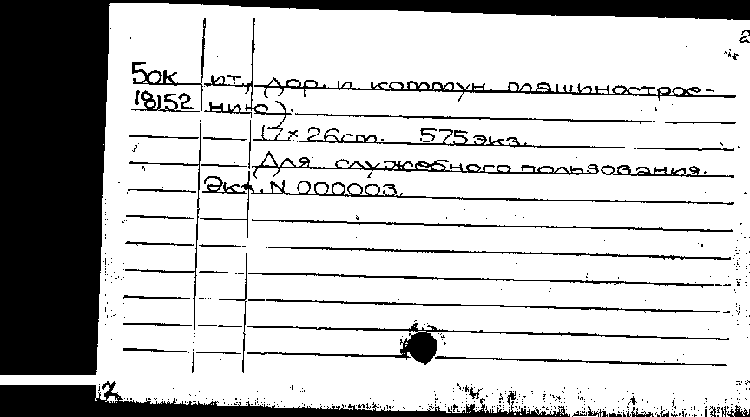 2
50к ит., дор. и коммун. машинострое-
18152 нию).
17×26см. 575 экз.
Для служебного пользования.
Экз. N 000003.